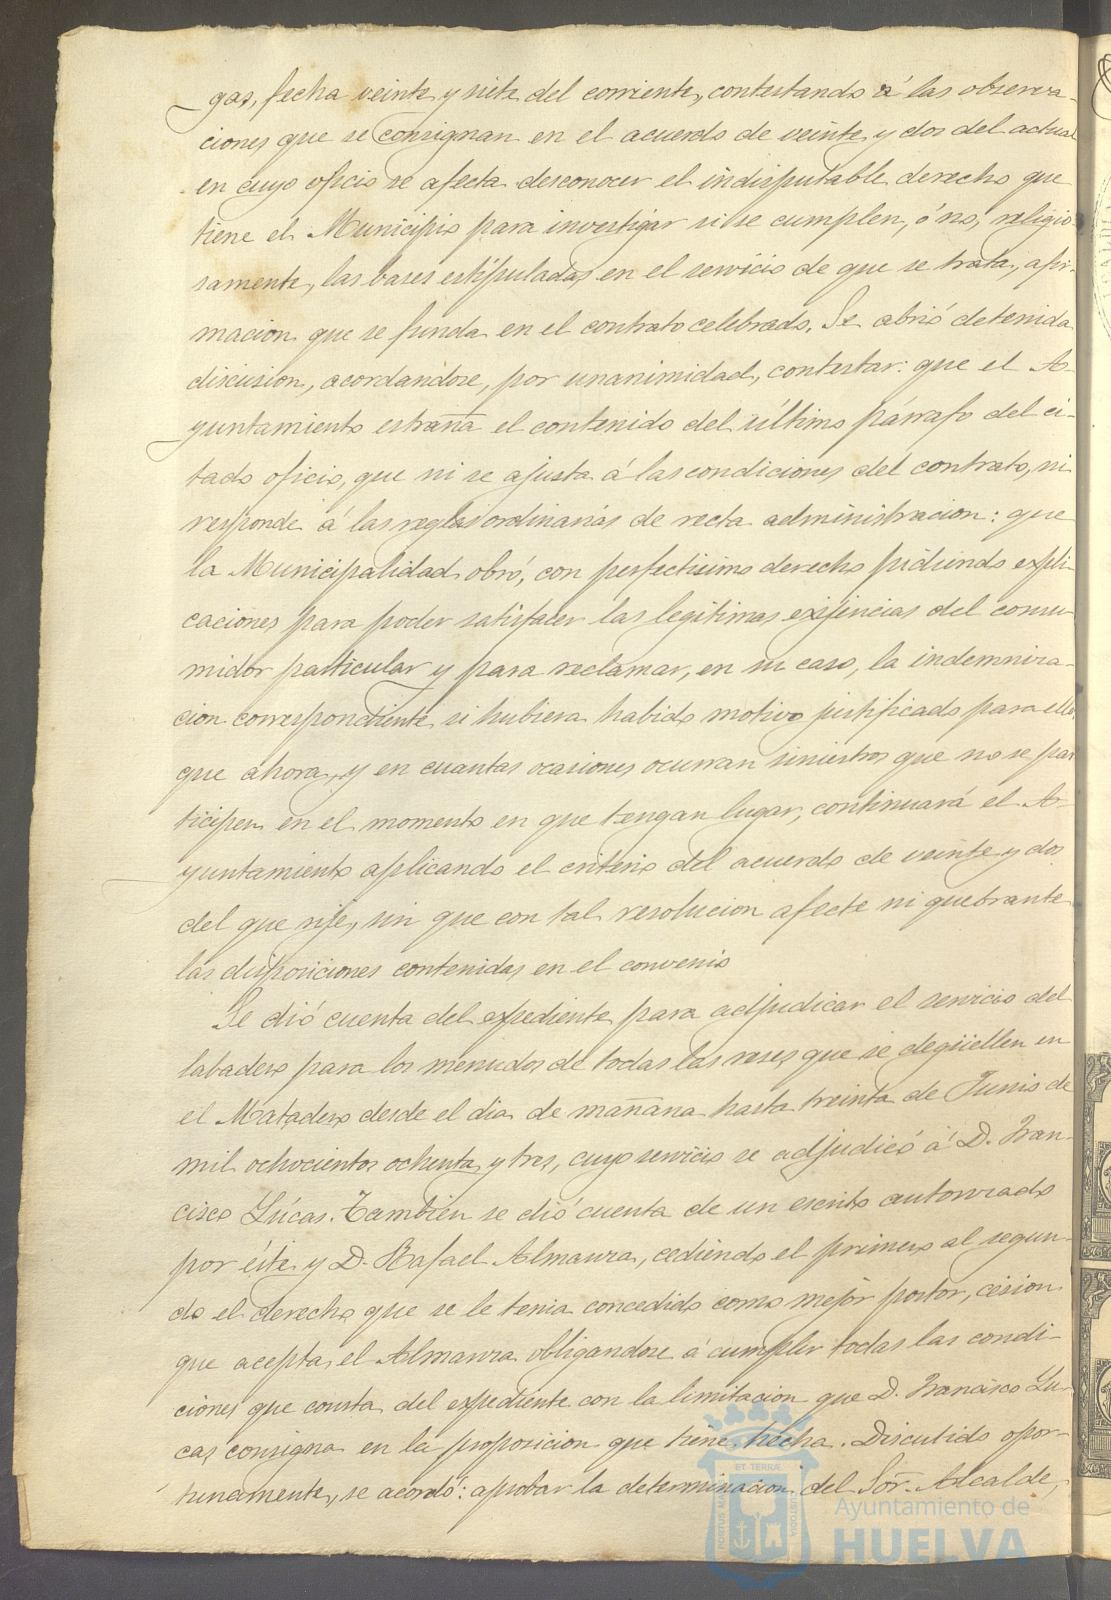 gas, fecha veinte y siete del corriente, contestando á las observa-
ciones que se consignan en el acuerdo de veinte y dos del actual
en cuyo oficio se afecta desconocer el indisputable derecho que
tiene el Municipio para investigar si se cumplen, ó no, religio-
samente, las bases estipuladas en el servicio de que se trata, afir-
macion que se funda en el contrato celebrado. Se abrió detenida
discusion, acordandose, por unanimidad, contestar: que el A-
yuntamiento estraña el contenido del último párrafo del ci-
tado oficio, que ni se ajusta á las condiciones del contrato, ni
responde á las reglas ordinarias de recta administracion: que
la Municipalidad obró, con perfectisimo derecho pidiendo expli-
caciones para poder satisfacer las legitimas exijencias del consu-
midor particular y para reclamar, en su caso, la indemniza-
cion correspondiente si hubiera habido motivo justificado para ello,
que ahora, y en cuantas ocasiones ocurran siniestros que no se par-
ticipen en el momento en que tengan lugar, continuará el A-
yuntamiento aplicando el criterio del acuerdo de veinte y dos
del que rije, sin que con tal resolucion afecte ni quebrante
las disposiciones contenidas en el convenio
Se dió cuenta del expediente para adjudicar el servicio del
labadero para los menudos de todas las reses que se degüellen en
el Matadero desde el dia de mañana hasta treinta de Junio de
mil ochocientos ochenta y tres, cuyo servicio se adjudicó á D. Fran-
cisco Lúcas. Tambien se dió cuenta de un escrito autorizado
por éste y D. Rafael Almanza, cediendo el primero al segun-
do el derecho que se le tenia concedido como mejor postor, cesion
que acepta el Almanza obligandose á cumplir todas las condi-
ciones que consta del expediente con la limitacion que D. Francisco Lu-
cas consigna en la proposicion que tiene hecha. Discutido opor-
tunamente, se acordó: aprobar la determinacion del Sor. Alcalde,
Ayuntamiento de
HUELVA